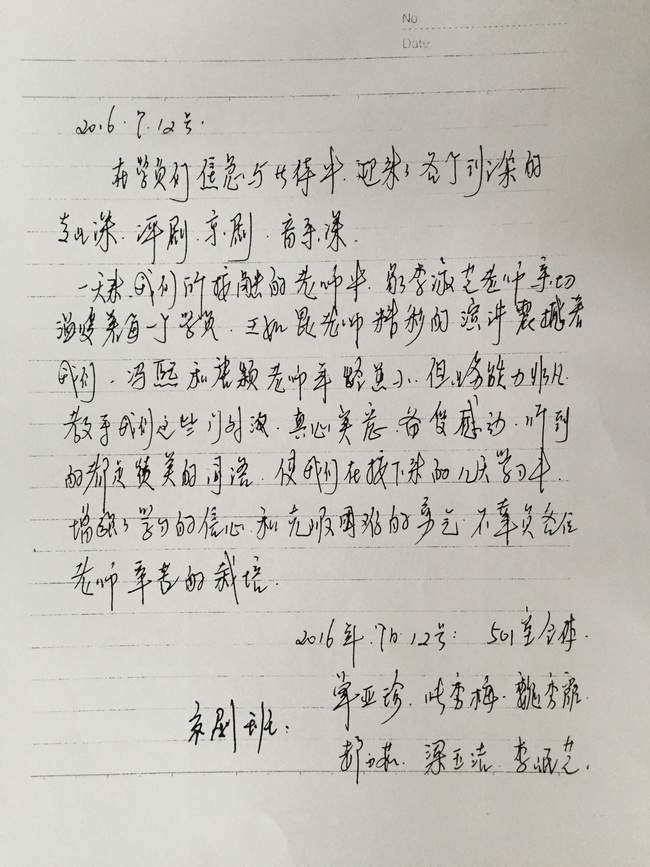 No
Date
2016.7.12号.
在学员们焦急与等待中.迎来了各个剧种的
课.评剧.京剧.音乐课.
一天来.我们所接触的老师中.李淑芝老师亲切
温暖着每一个学员.王如昆老师精彩的演讲震撼着
我们.冯熙和唐颖老师年轻虽小.但业务能力非凡
教导我们这些门外汉.真心实意.备受感动.听到
的都是赞美的词语.使我们在接下来的几天学习中.
增强了学习的信心和克服困难的勇气.不辜负各位
老师辛苦的栽培.
2016年.7月.12号: 501室全体.
京剧班: 单亚珍.秀梅.魏秀
梁玉洁.李